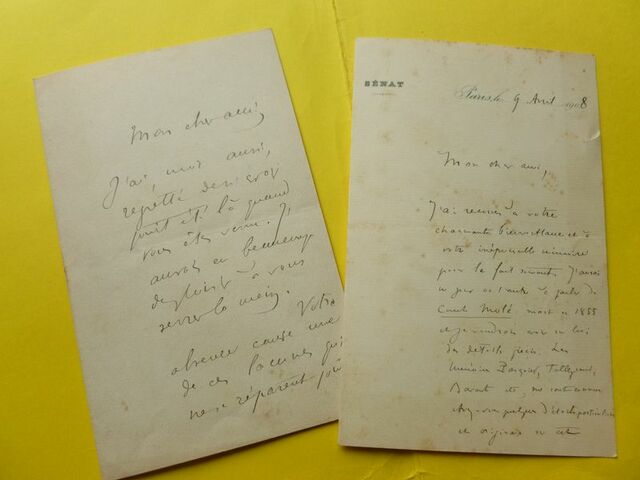 Mon cher ami,
J'ai, moi aussi,
regretté de n'avoir
point été là quand
vous êtes venu. J'
aurais eu beaucoup
de plaisir à vous
serrer la main.
Votre
absence cause une
de ces lacunes qui
ne se réparent point
SÉNAT
Paris, le 9 Avril 1908
Mon cher ami,
J'ai recours à votre
charmante bienveillance et à
votre inépuisable
pour le fait suivant. J'aurai
un jour ou l'autre à parler du
Comte Molé, mort en 1855
et je voudrais avoir sur lui
des détails précis. Les
Pasquier, Talleyrand,
Barante etc, me sont connus
Avez-vous quelque
et original sur cet